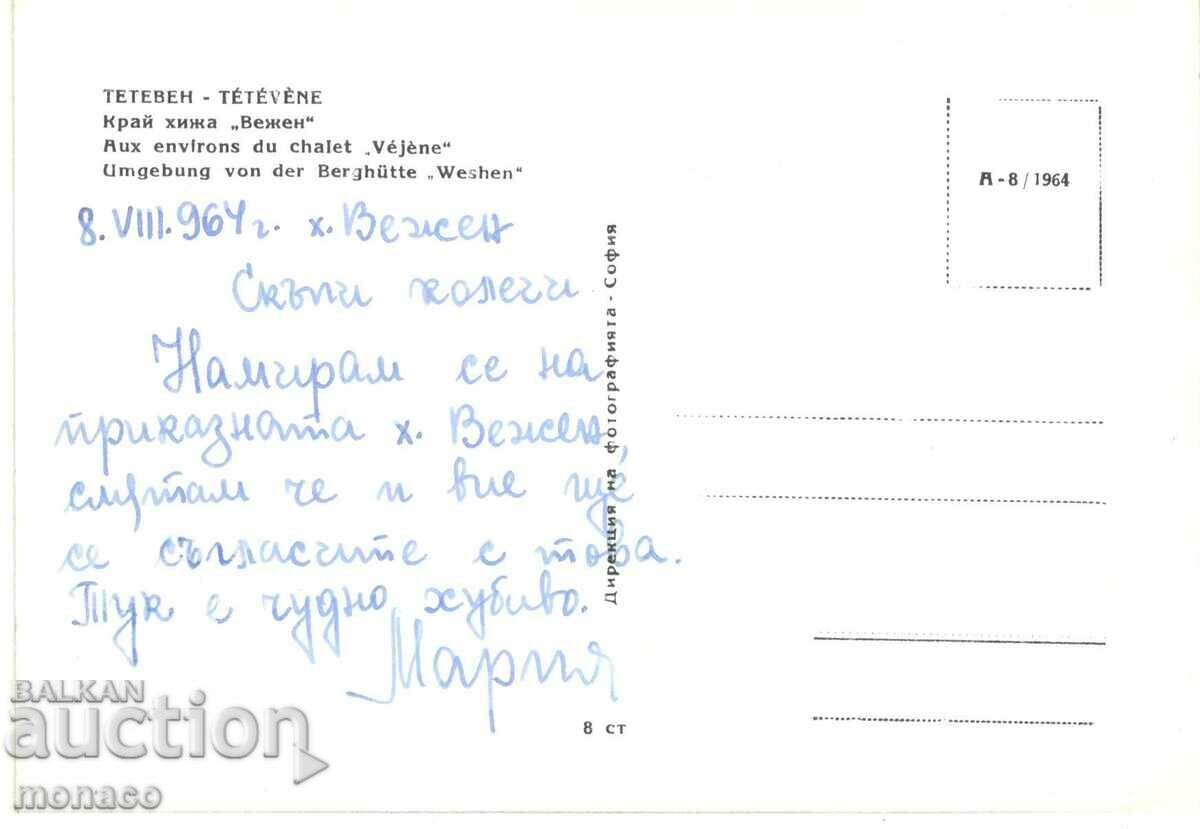 ТЕТЕВЕН - TÉTÉVÈNE
Край хижа „Вежен“
Aux environs du chalet „Véjène“
Umgebung von der Berghütte „Weshen“
А - 8 / 1964
8.VIII.964 г. х. Вежен
Скъпи колеги
Намирам се на
приказната х. Вежен,
смятам че и вие ще
се съгласите с това.
Тук е чудно хубиво.
Мария
Дирекция на фотографията - София
8 ст
BALKAN
auction
monaco